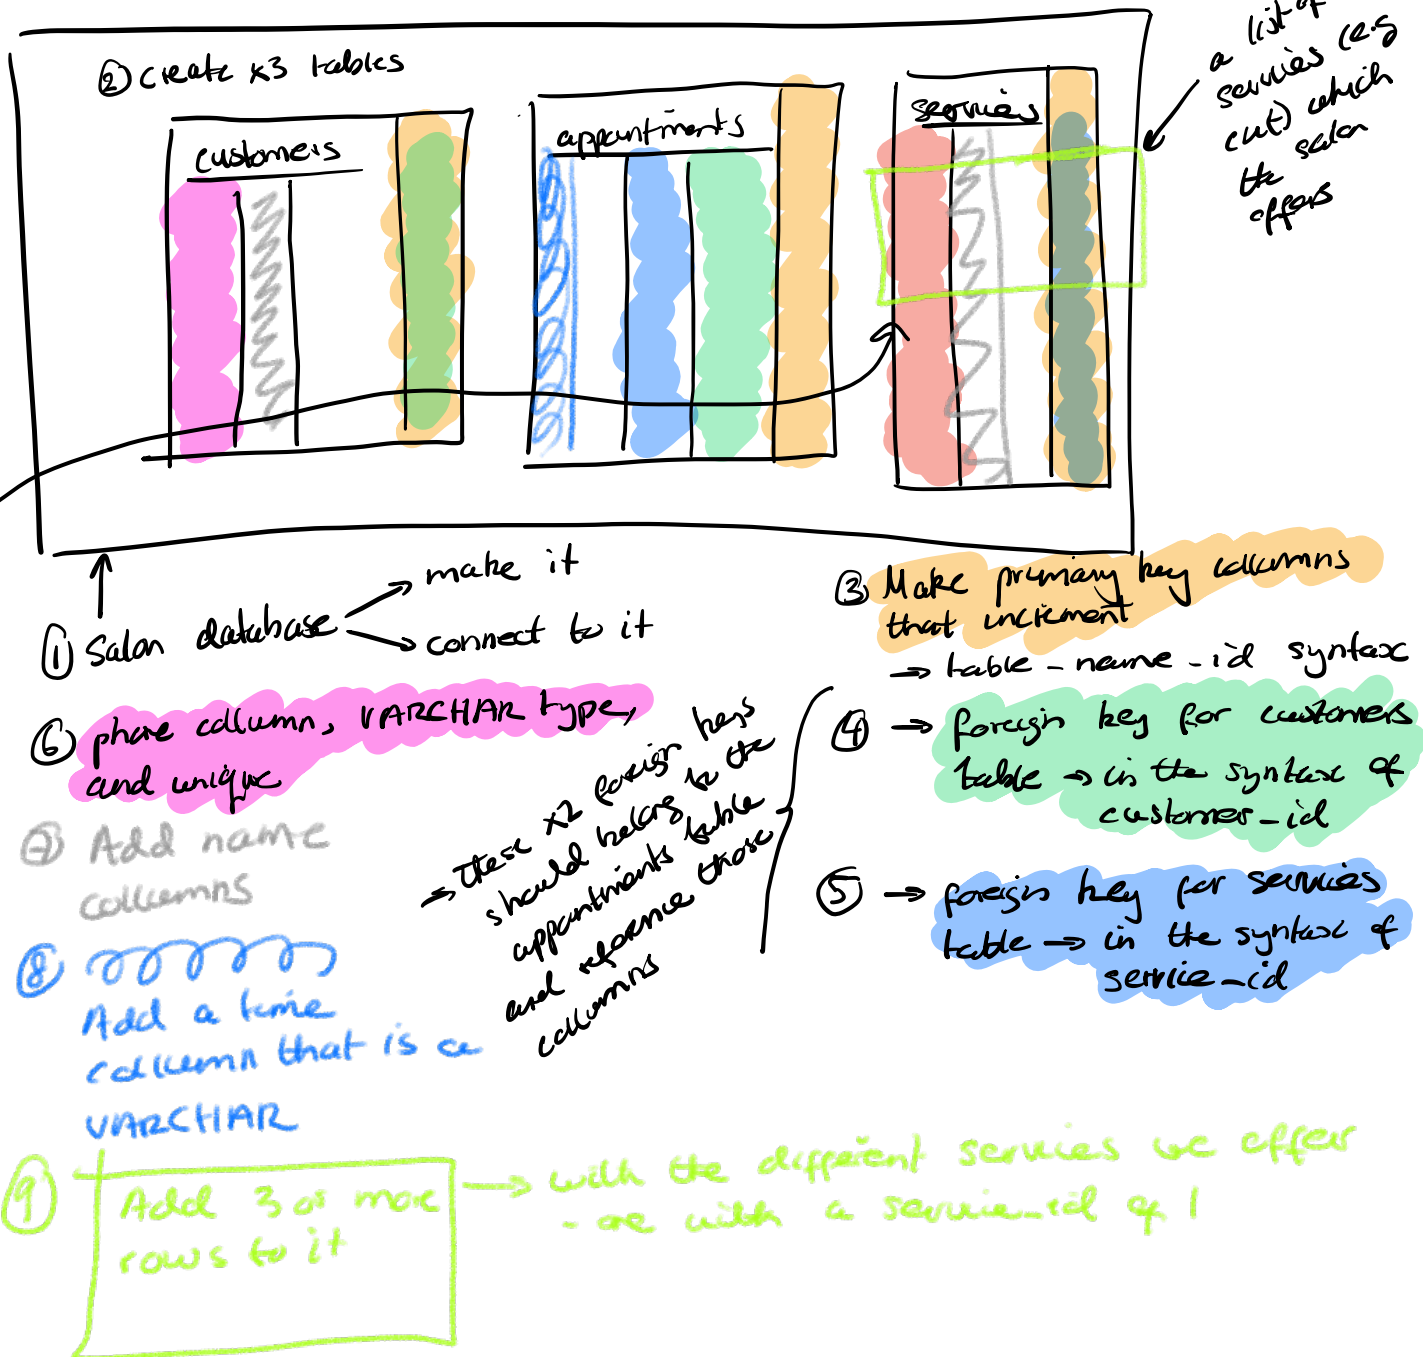 ② Create x3 tables
customers
appointments
services
a list of
services (e.g
cut) which
the salon
offers
① Salon database
make it
connect to it
③ Make primary key collumns
that increment
→ table_name_id syntax
④ → foreign key for customers
table → in the syntax of
customer_id
⑤ → foreign key for services
table → in the syntax of
service_id
→ These x2 foreign keys
should belong to the
appointments table
and reference those
collumns
⑥ phone collumn, VARCHAR type,
and unique
⑦ Add name
collumns
⑧
Add a time
collumn that is a
VARCHAR
⑨ Add 3 or more
rows to it
→ with the different services we offer
- one with a service_id of 1